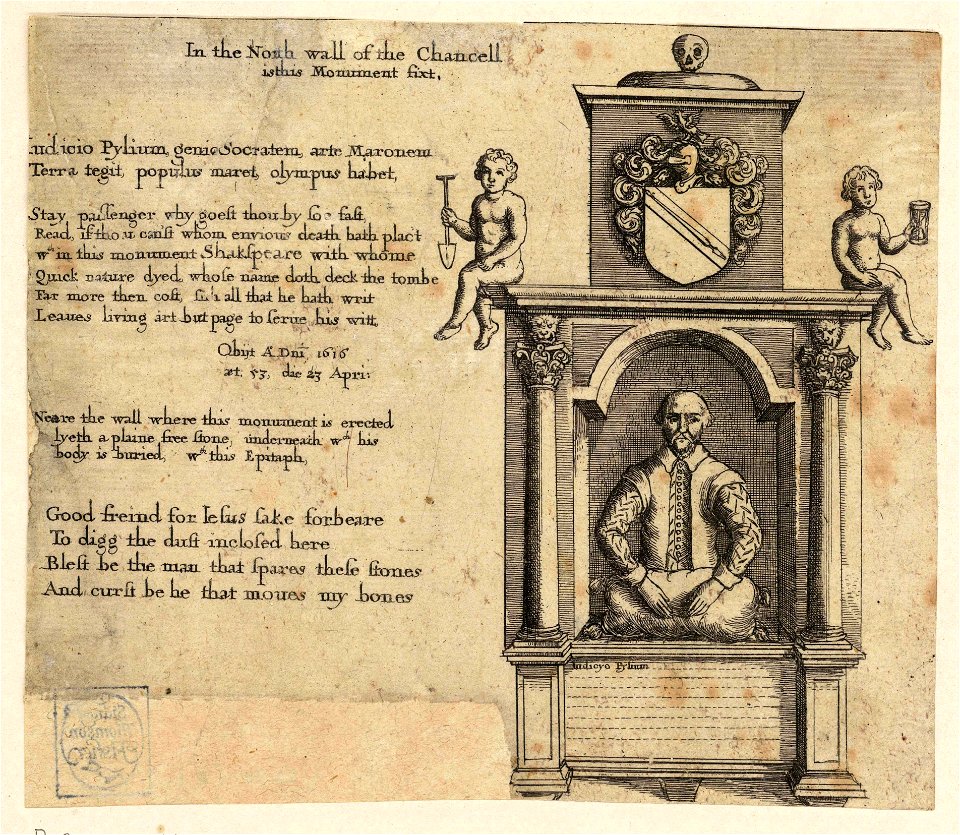 In the North wall of the Chancell
is this Monument fixt.
Iudicio Pylium, genio Socratem, arte Maronem
Terra tegit, populus mæret, olympus habet,
Stay passenger why goest thou by soe fast,
Read, if thou canst whom envious death hath plac't
wth in this monument Shakspeare with whome
Quick nature dyed, whose name doth deck the tombe
Far more then cost, sith all that he hath writ
Leaues living art but page to serue his witt,
Obijt A͞o Dni, 1616
æt. 53, die 23 Apri:
Neare the wall where this monument is erected
lyeth a plaine free stone, underneath wch his
body is buried, wth this Epitaph,
Good freind for Iesus sake forbeare
To digg the dust inclosed here
Blest be the man that spares these stones
And curst be he that moues my bones
Iudicyo Pylium